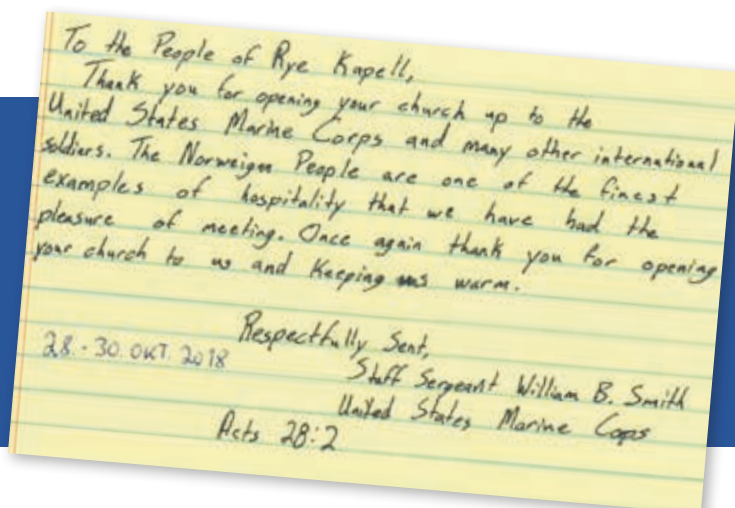 To the People of Rye Kapell,
Thank you for opening your church up to the
United States Marine Corps and many other international
soldiers. The Norweign People are one of the finest
examples of hospitality that we have had the
pleasure of meeting. Once again thank you for opening
your church to us and Keeping us warm.
Respectfully Sent,
28.-30. OKT. 2018
Staff Sergeant William B. Smith
United States Marine Cops
Acts 28:2